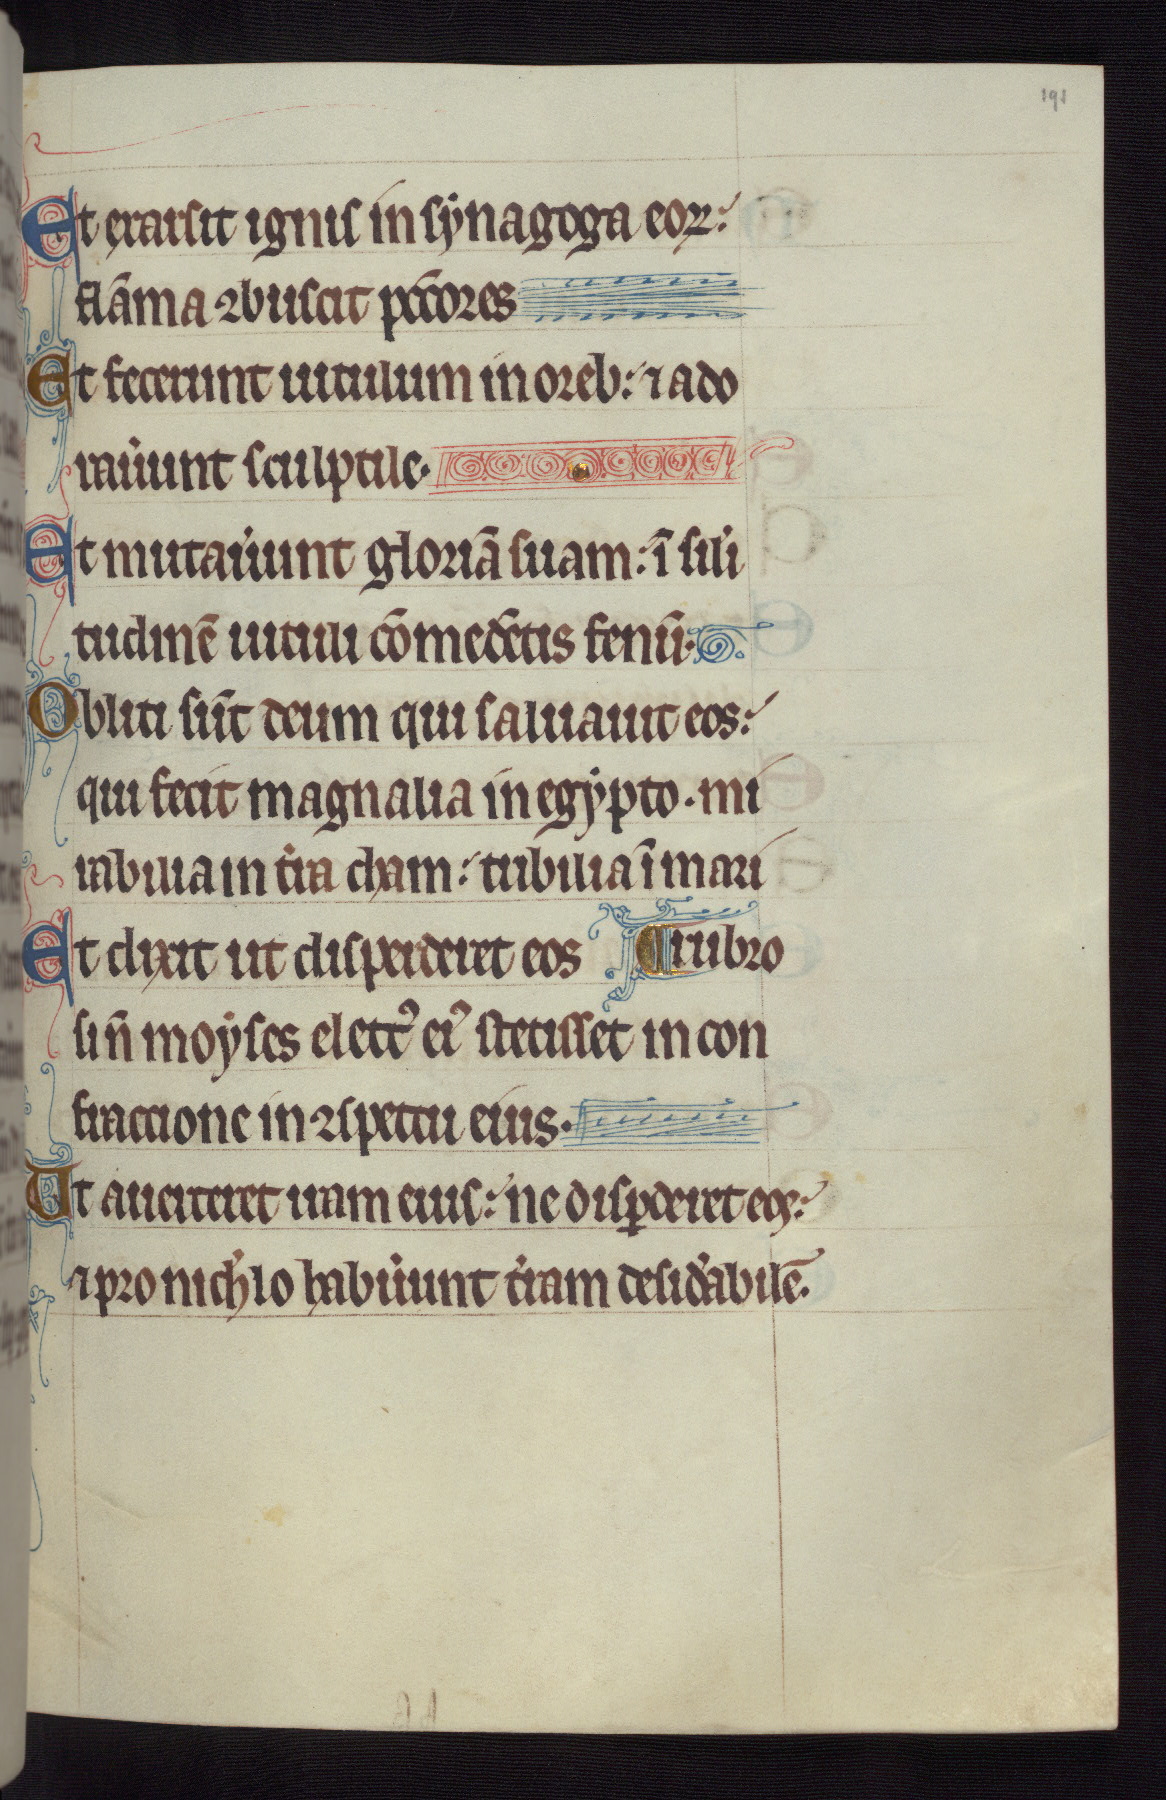 191
Et exarsit ignis in synagoga eoꝝ:
flāma ꝯbuscit pctōres
Et fecerunt uitulum in oreb: ⁊ ado
rau̍unt sculptile.
Et mutau̍unt gloriā suam: ī sili̍
tudinē uituli cōmedētis fenū.
Obliti sūt deum qui saluauit eos:
qui fecit magnalia in egypto. mi
rabilia in t̍ra cham: t̍ribilia ī mari
Et dixit ut disperderet eos ¶ rubro
si n̄ moyses electꝰ eiꝰ stetisset in con
fractione in ꝯspectu eius.
Ut auerteret iram eius: ne disꝑderet eos:
⁊ pro nich̍lo habu̍unt t̍ram desid̍abilē.